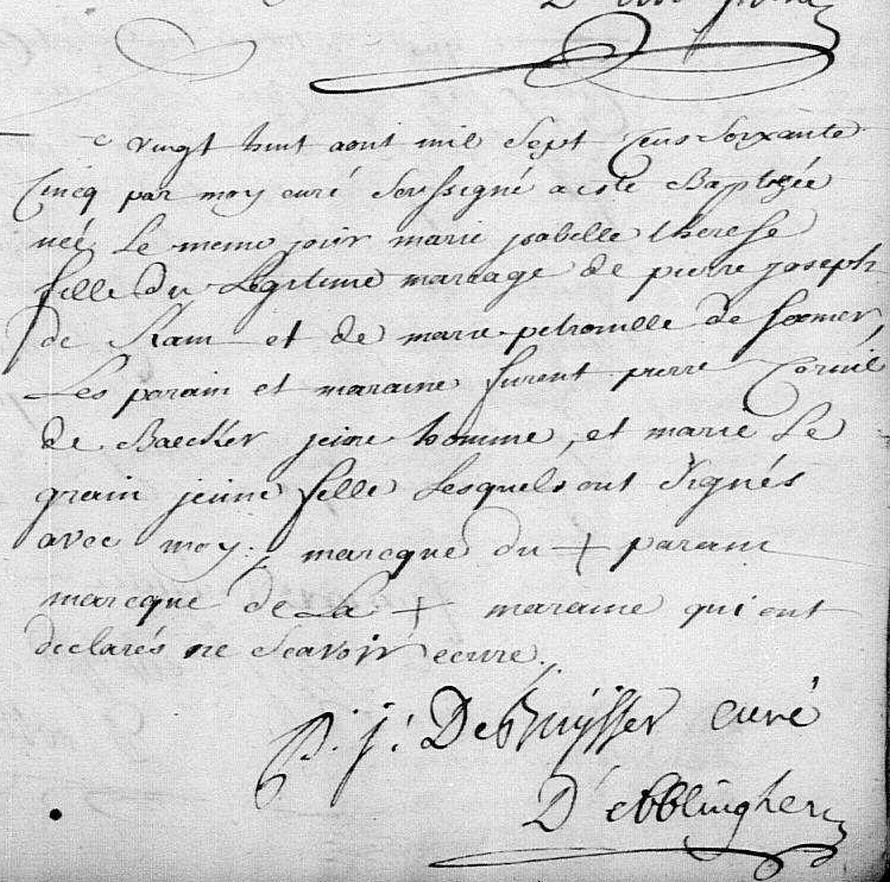 e vingt huit aout mil sept cens soixante
Cincq par moy curé soussigné a este Baptizée
neé Le meme jour marie isabelle therese
fille du Legitime mariage de pierre joseph
de Kam et de marie petronille de somer,
Les parain et maraine furent pierre Cornil
de Baecker jeune homme, et marie Le
grain jeune fille Lesquels ont signés
avec moy; marcque du + parain
marcque de La + maraine qui ont
declarés ne scavoir ecrire.
P. j. De curé
D'ebblinghem